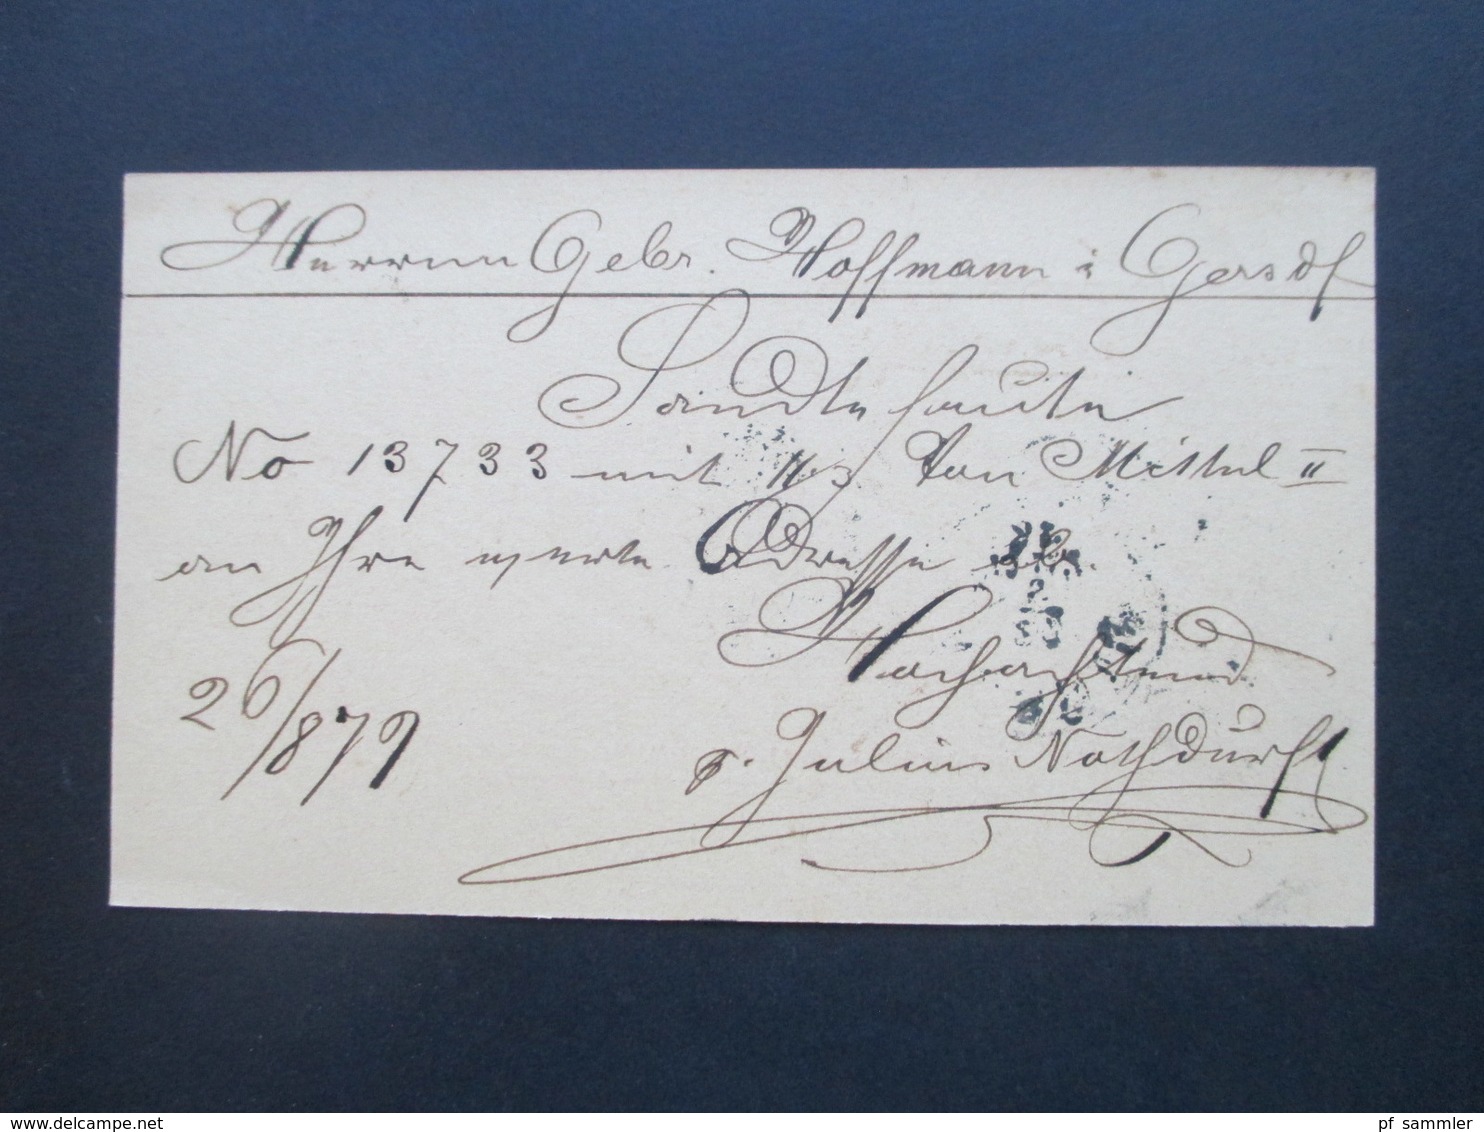 Herren Gebr. Hoffmann i Gersdf
Sandte heute
No 13733 mit 113 Ton Mittel II
an Ihre werte Adresse ab.
Hochachtend
26/879
p. Julius Nothdurft
delcampe.net
pf_sammler